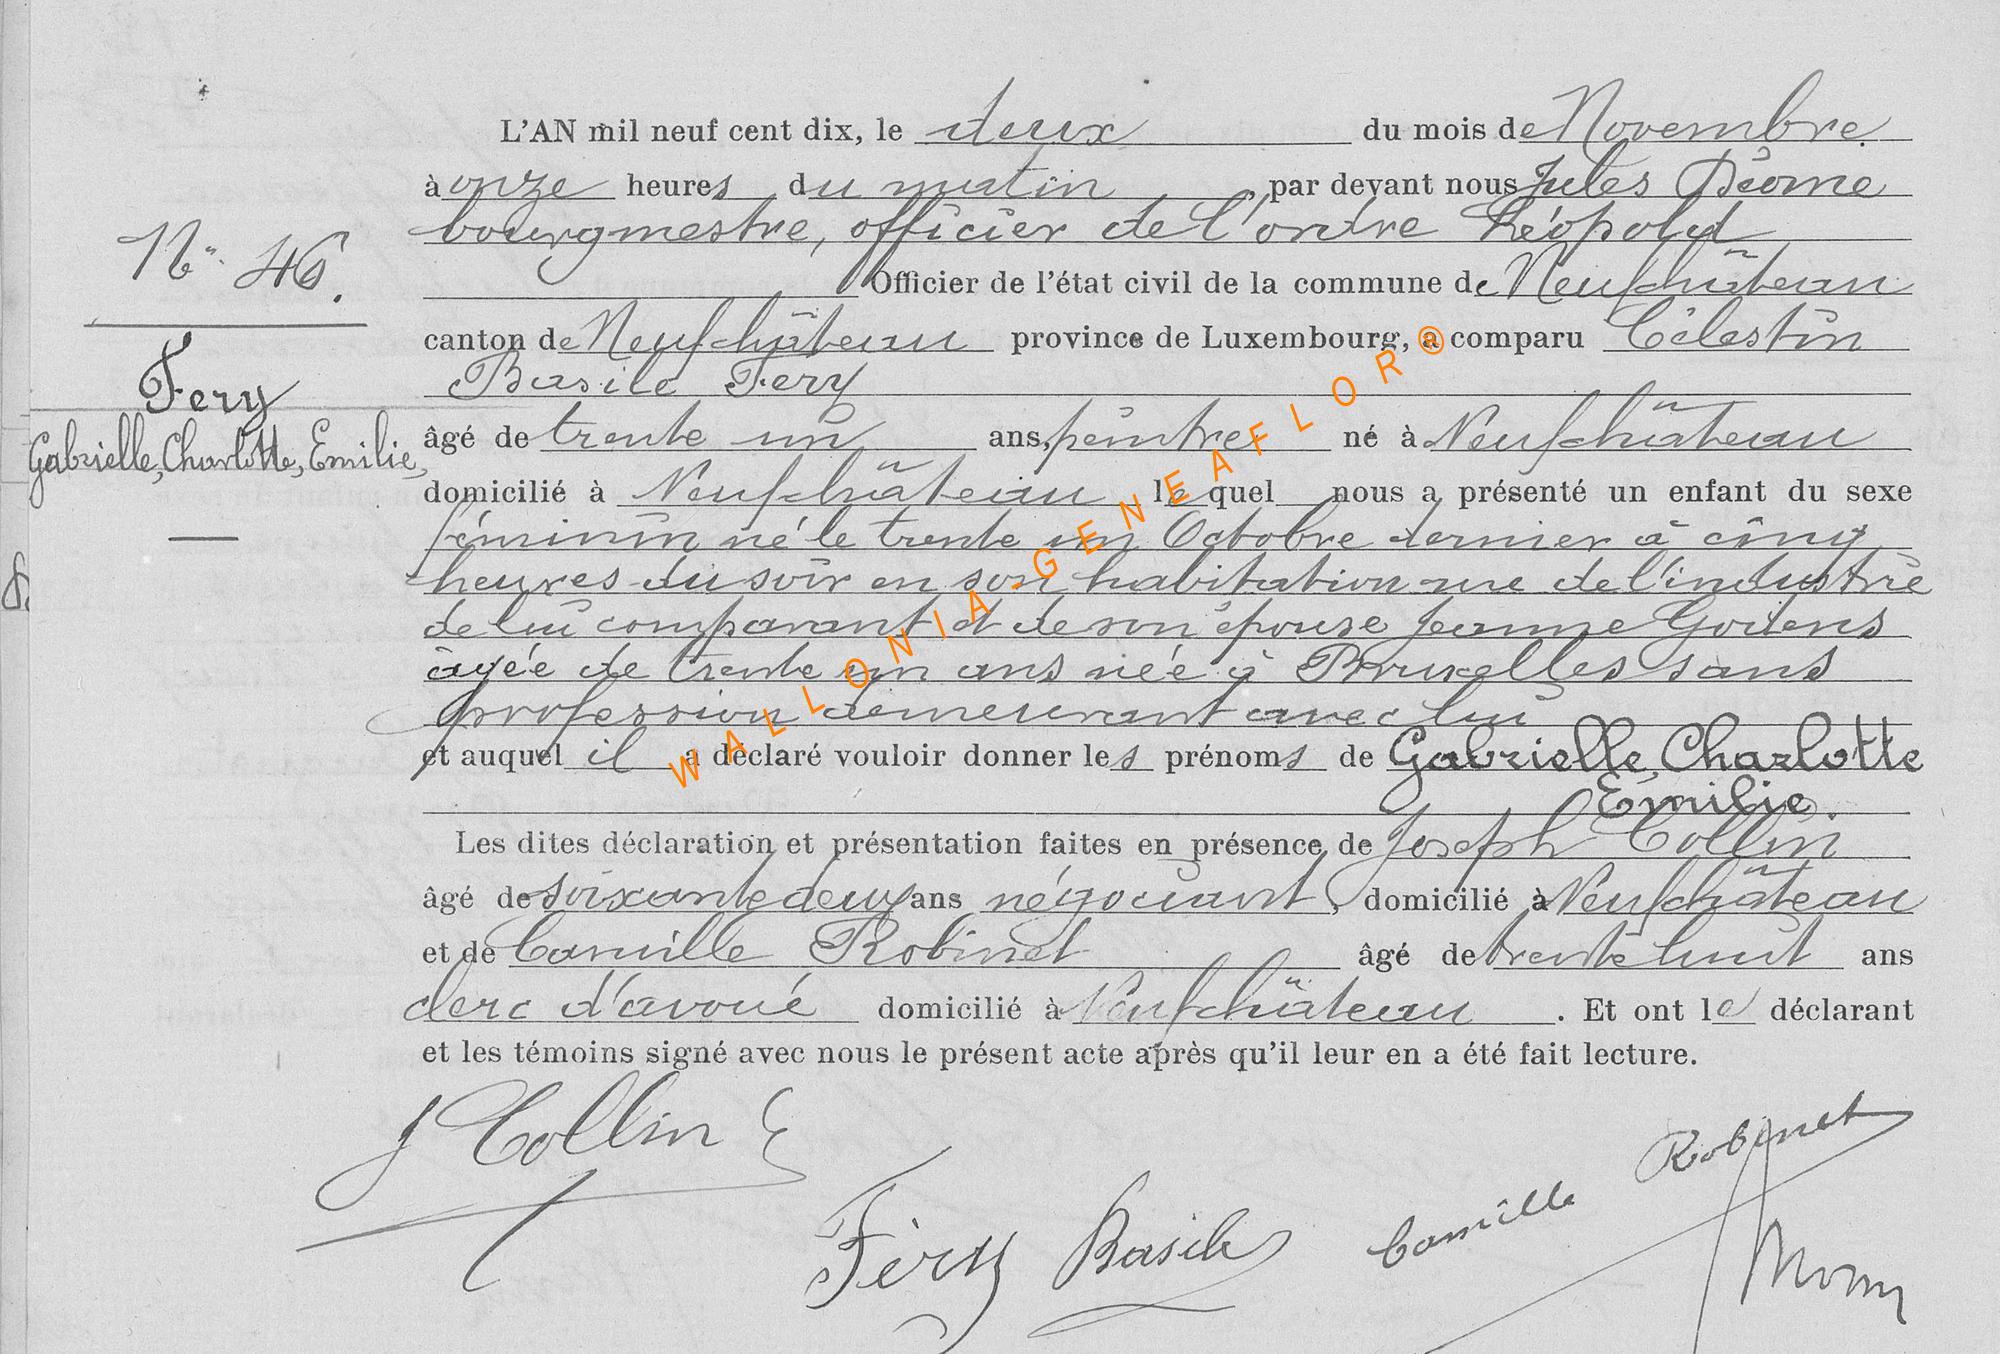 L'AN mil neuf cent dix, le deux du mois de Novembre
à onze heures du matin, par devant nous Jules
bourgmestre, officier de l'ordre Léopold
Officier de l'état civil de la commune de Neufchâteau
canton de Neufchâteau province de Luxembourg, a comparu Célestin
Basile Fery
âgé de trente un ans, peintre né à Neufchâteau
domicilié à Neufchâteau lequel nous a présenté un enfant du sexe
féminin né le trente un Octobre dernier à cinq
heures du soir en son habitation rue de l'industrie
de lui comparant et de son épouse Jeanne
âgée de trente un ans née à Bruxelles sans
profession demeurant avec lui
et auquel il a déclaré vouloir donner les prénoms de Gabrielle, Charlotte
Emilie.
Les dites déclaration et présentation faites en présence de Joseph Collin
âgé de soixante deux ans négociant, domicilié à Neufchâteau
et de Camille Robinet âgé de trente huit ans
clerc d'avoué domicilié à Neufchâteau. Et ont le déclarant
et les témoins signé avec nous le présent acte après qu'il leur en a été fait lecture.
N° 46.
Fery
Gabrielle, Charlotte, Emilie,
J Collin
Féry Basile
Camille Robinet
WALLONIA-GENEAFLOR®